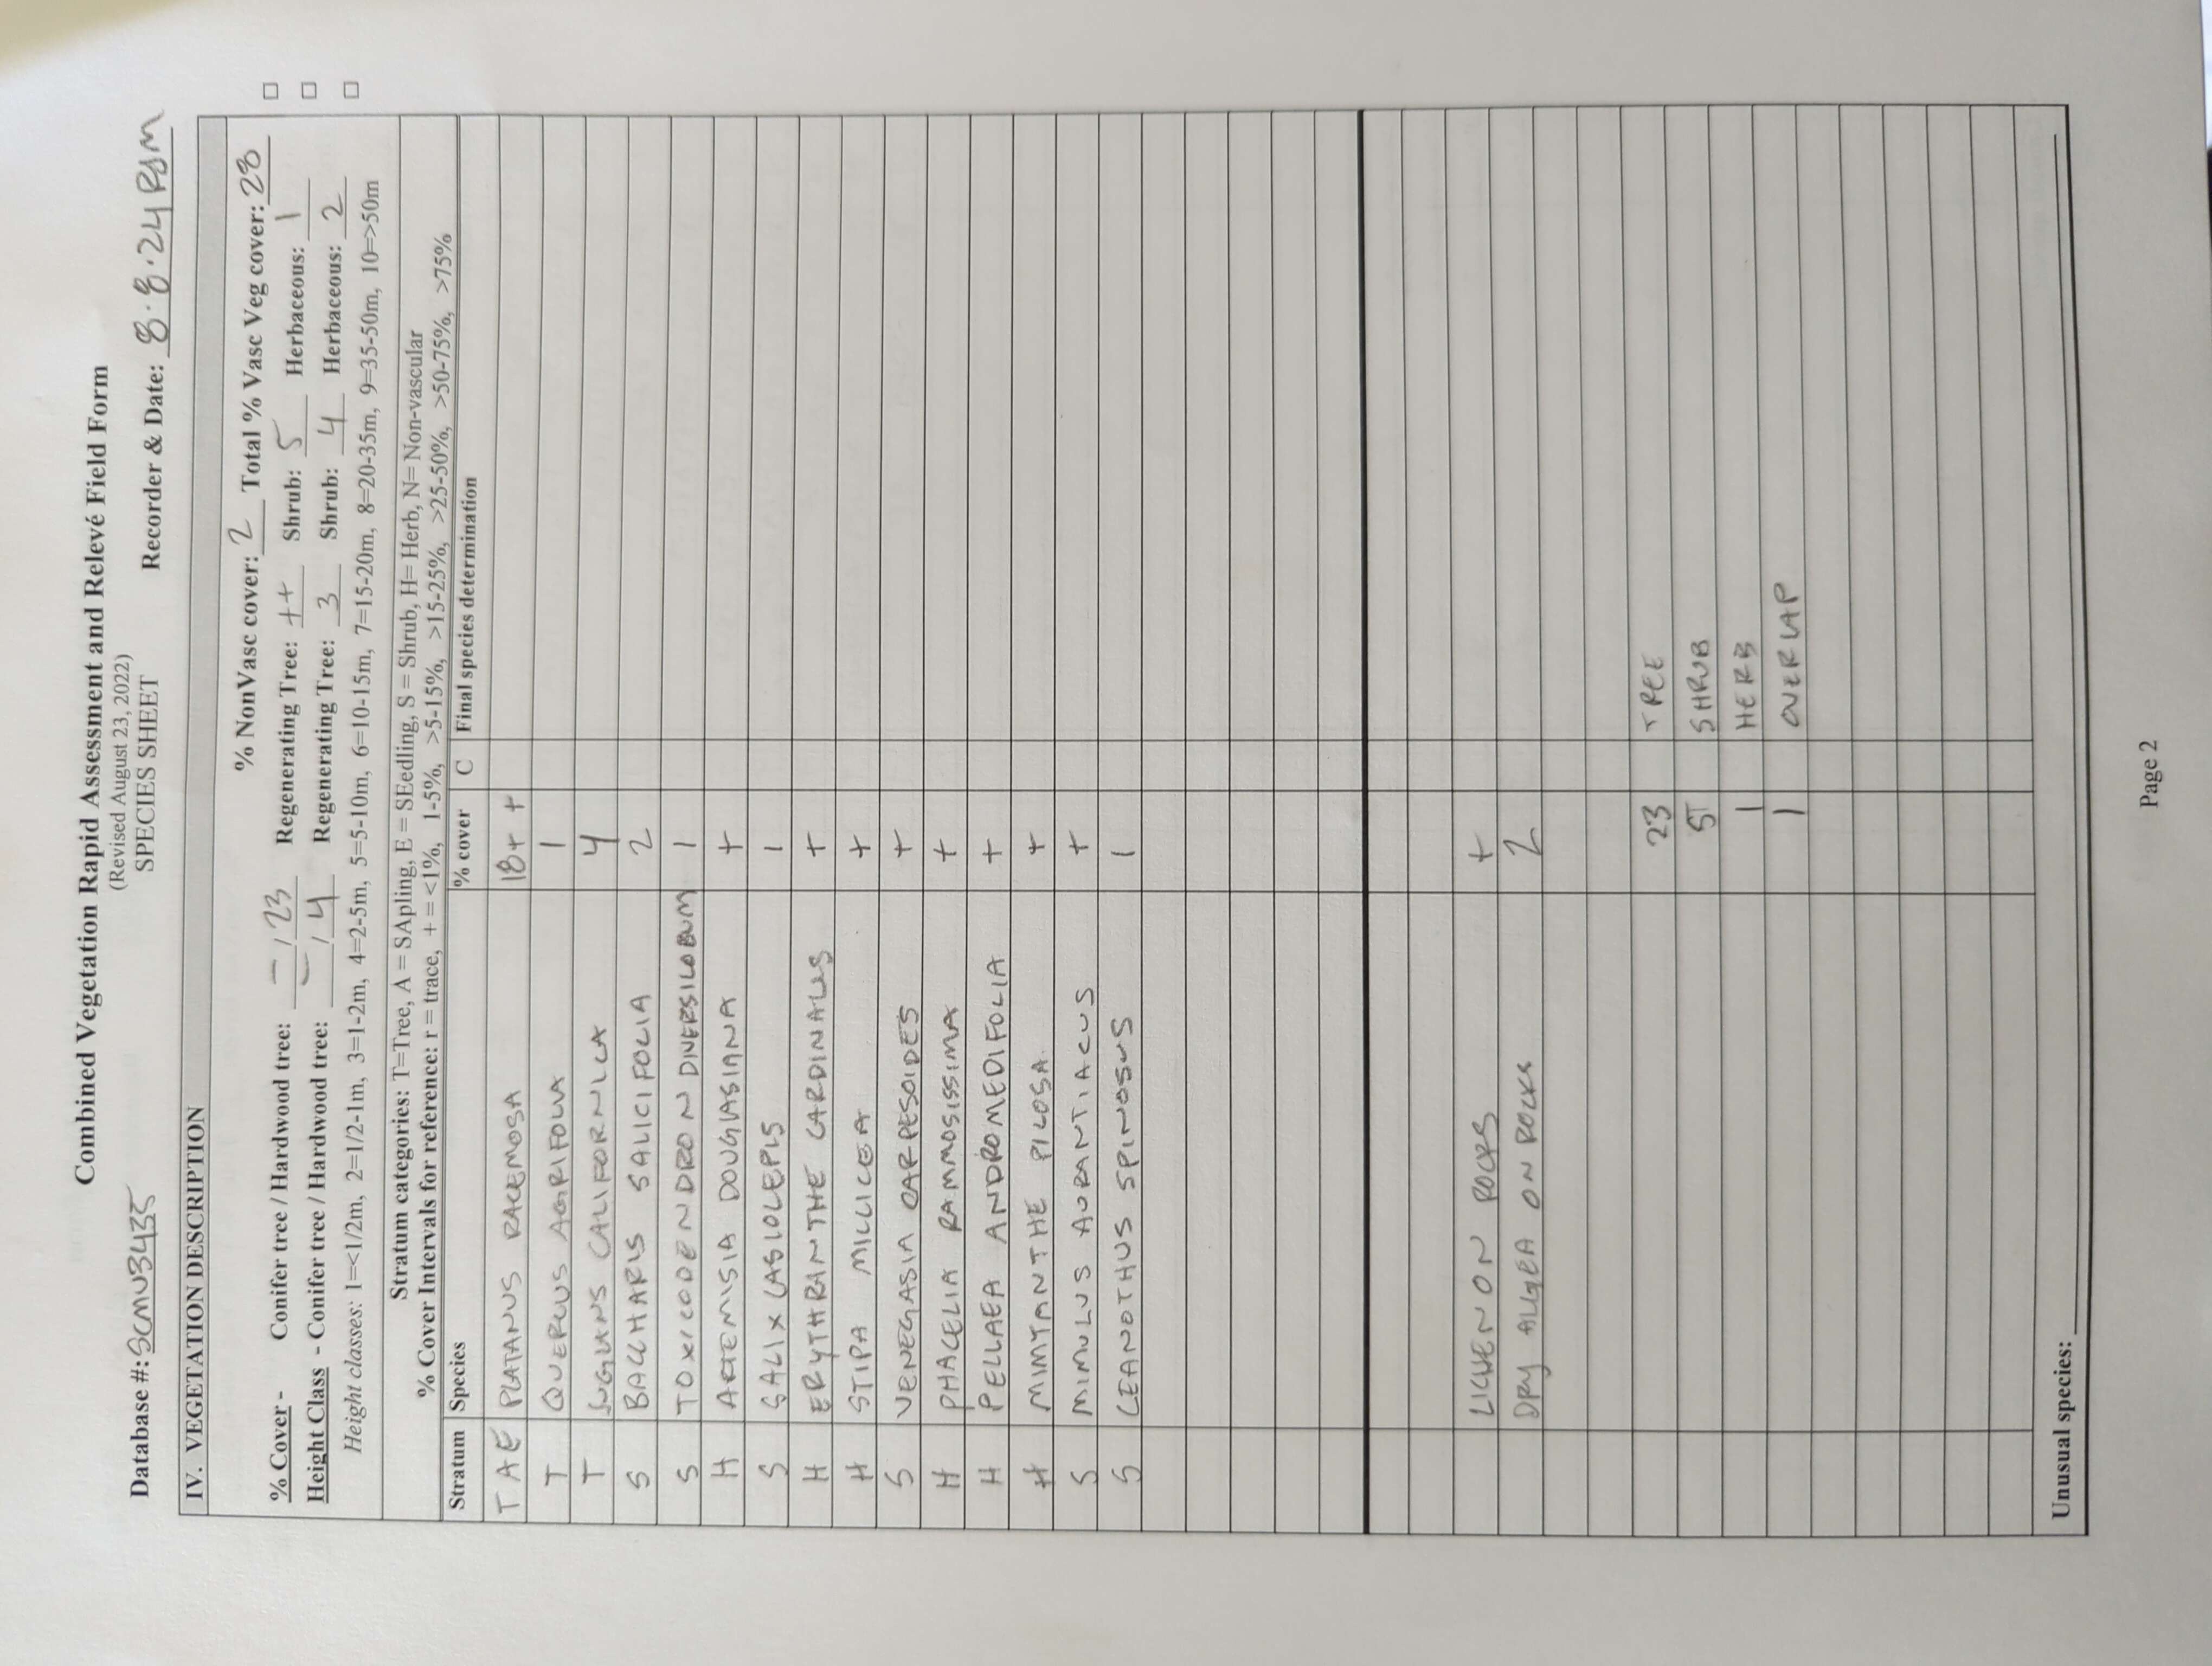 Combined Vegetation Rapid Assessment and Relevé Field Form
(Revised August 23, 2022)
SPECIES SHEET
Database #: SCMU3435 Recorder & Date: 8·8·24 PSM
IV. VEGETATION DESCRIPTION
% NonVasc cover: 2 Total % Vasc Veg cover: 28
% Cover - Conifer tree / Hardwood tree: — / 23 Regenerating Tree: ++ Shrub: 5 Herbaceous: 1
Height Class - Conifer tree / Hardwood tree: — / 4 Regenerating Tree: 3 Shrub: 4 Herbaceous: 2
Height classes: 1=<1/2m, 2=1/2-1m, 3=1-2m, 4=2-5m, 5=5-10m, 6=10-15m, 7=15-20m, 8=20-35m, 9=35-50m, 10=>50m
Stratum categories: T=Tree, A = SApling, E = SEedling, S = Shrub, H= Herb, N= Non-vascular
% Cover Intervals for reference: r = trace, + = <1%, 1-5%, >5-15%, >15-25%, >25-50%, >50-75%, >75%
Stratum Species % cover C Final species determination
T A E PLATANUS RACEMOSA 18 + +
T QUERCUS AGRIFOLIA 1
T JUGLANS CALIFORNICA 4
S BACCHARIS SALICIFOLIA 2
S TOXICODENDRON DIVERSILOBUM 1
H ARTEMISIA DOUGLASIANA +
S SALIX LASIOLEPIS 1
H ERYTHRANTHE CARDINALIS +
H STIPA MILLICEA +
S VENEGASIA CARPESOIDES +
H PHACELIA RAMMOSISSIMA +
H PELLAEA ANDROMEDIFOLIA +
H MIMTANTHE PILOSA +
S MIMULUS AURANTIACUS +
S CEANOTHUS SPINOSUS 1
LICHEN ON ROCKS +
DRY ALGEA ON ROCKS 2
23 TREE
5 SHRUB
1 HERB
1 OVERLAP
Unusual species:
Page 2